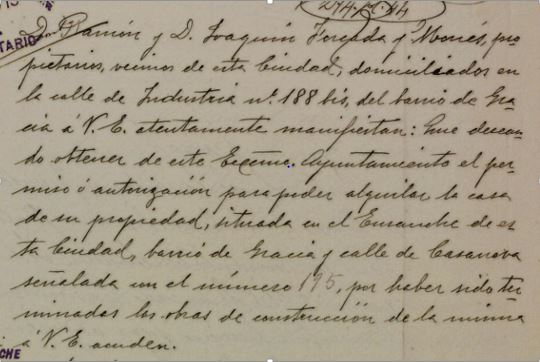 274.12.44
TARIO
D. Ramón y D. Joaquín Forjada y Monés, pro
pietarios, vecinos de esta Ciudad, domiciliados en
la calle de Industria nº 188 bis, del barrio de Gra
cia á V. E. atentamente manifiestan: Que desean
do obtener de este Excmo. Ayuntamiento el per
miso ó autorización para poder alquilar la casa
de su propiedad, situada en el Ensanche de es
ta Ciudad, barrio de Gracia y calle de Casanova
señalada con el número 175, por haber sido ter
minadas las obras de construcción de la misma
á V. E. acuden.
CHE